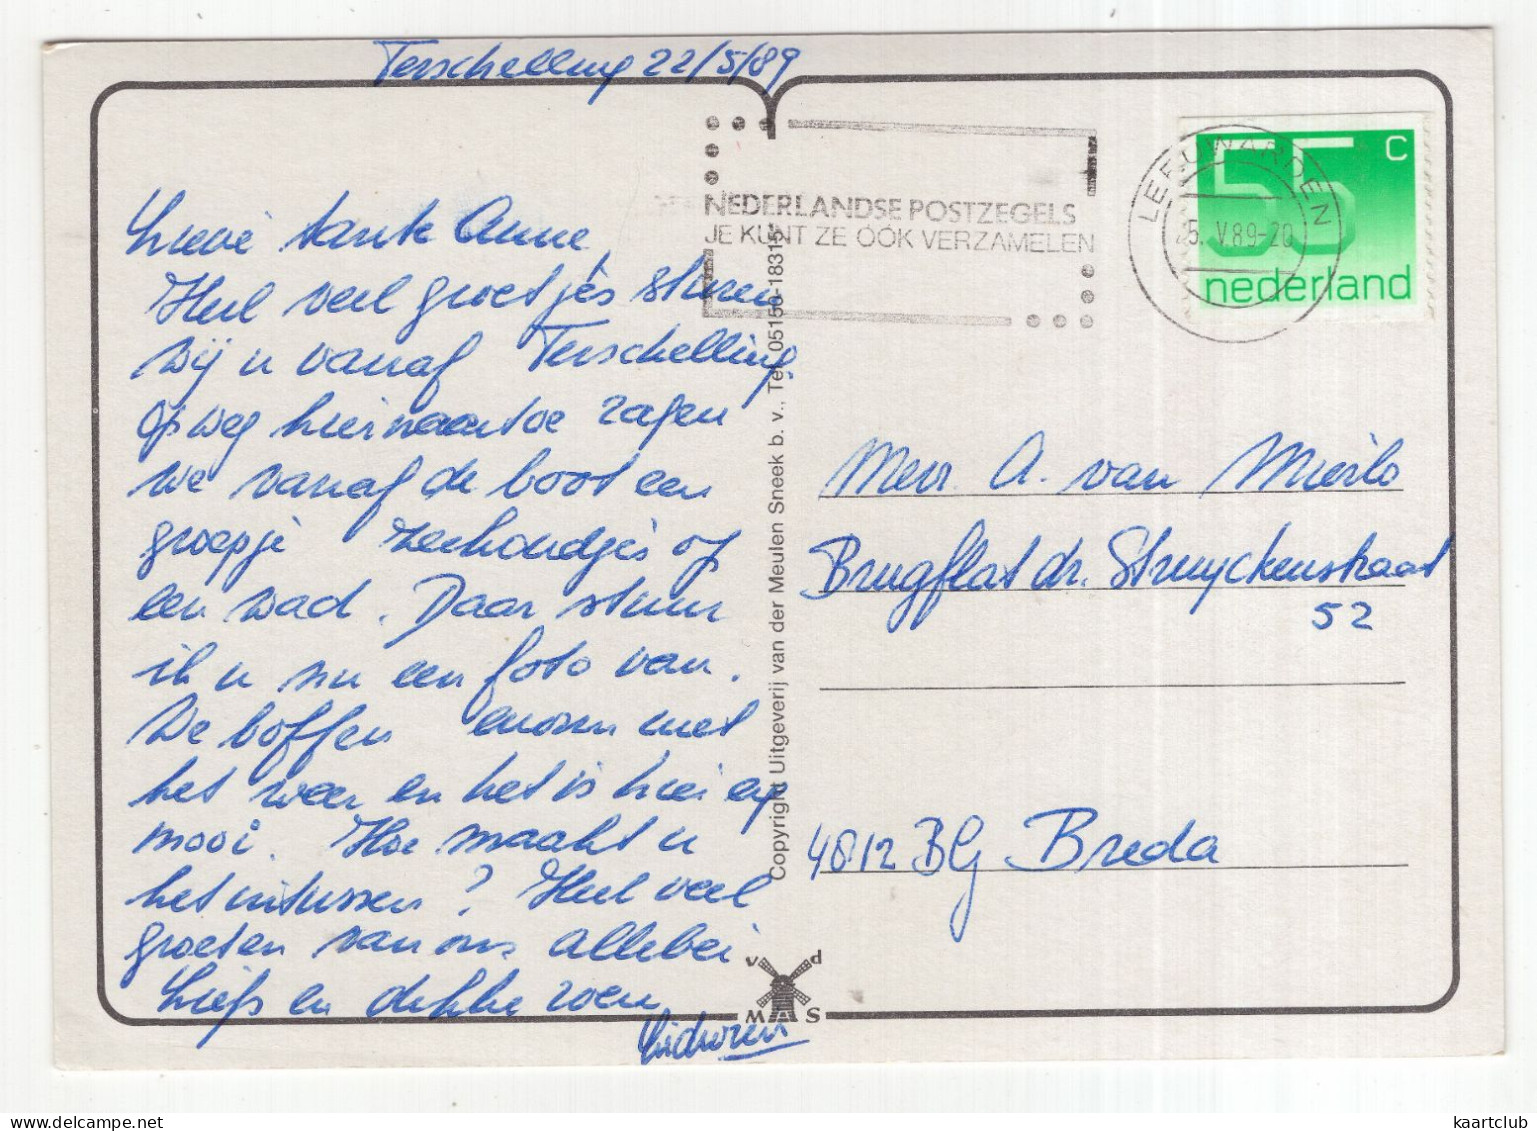 Terschelling 22/5/89
Lieve tante Anne,
Heel veel groetjes sturen
wij u vanaf Terschelling
op weg hiernaartoe zagen
we vanaf de boot een
groepje zeehondjes op
een wad. Daar stuur
ik u nu een foto van.
We boffen enorm met
het weer en het is hier erg
mooi. Hoe maakt u
het intussen? Heel veel
groeten van ons allebei
Liefs en dikke zoen
NEDERLANDSE POSTZEGELS
JE KUNT ZE OOK VERZAMELEN
LEEUWARDEN
25. V.89-20
55 c
nederland
Copyright Uitgeverij van der Meulen Sneek b. v., Tel. 05150-18315
Mevr. A. van Mierlo
Brugflat dr. Struyckenstraat
52
4812 BG Breda
v d
M S
kaartclub